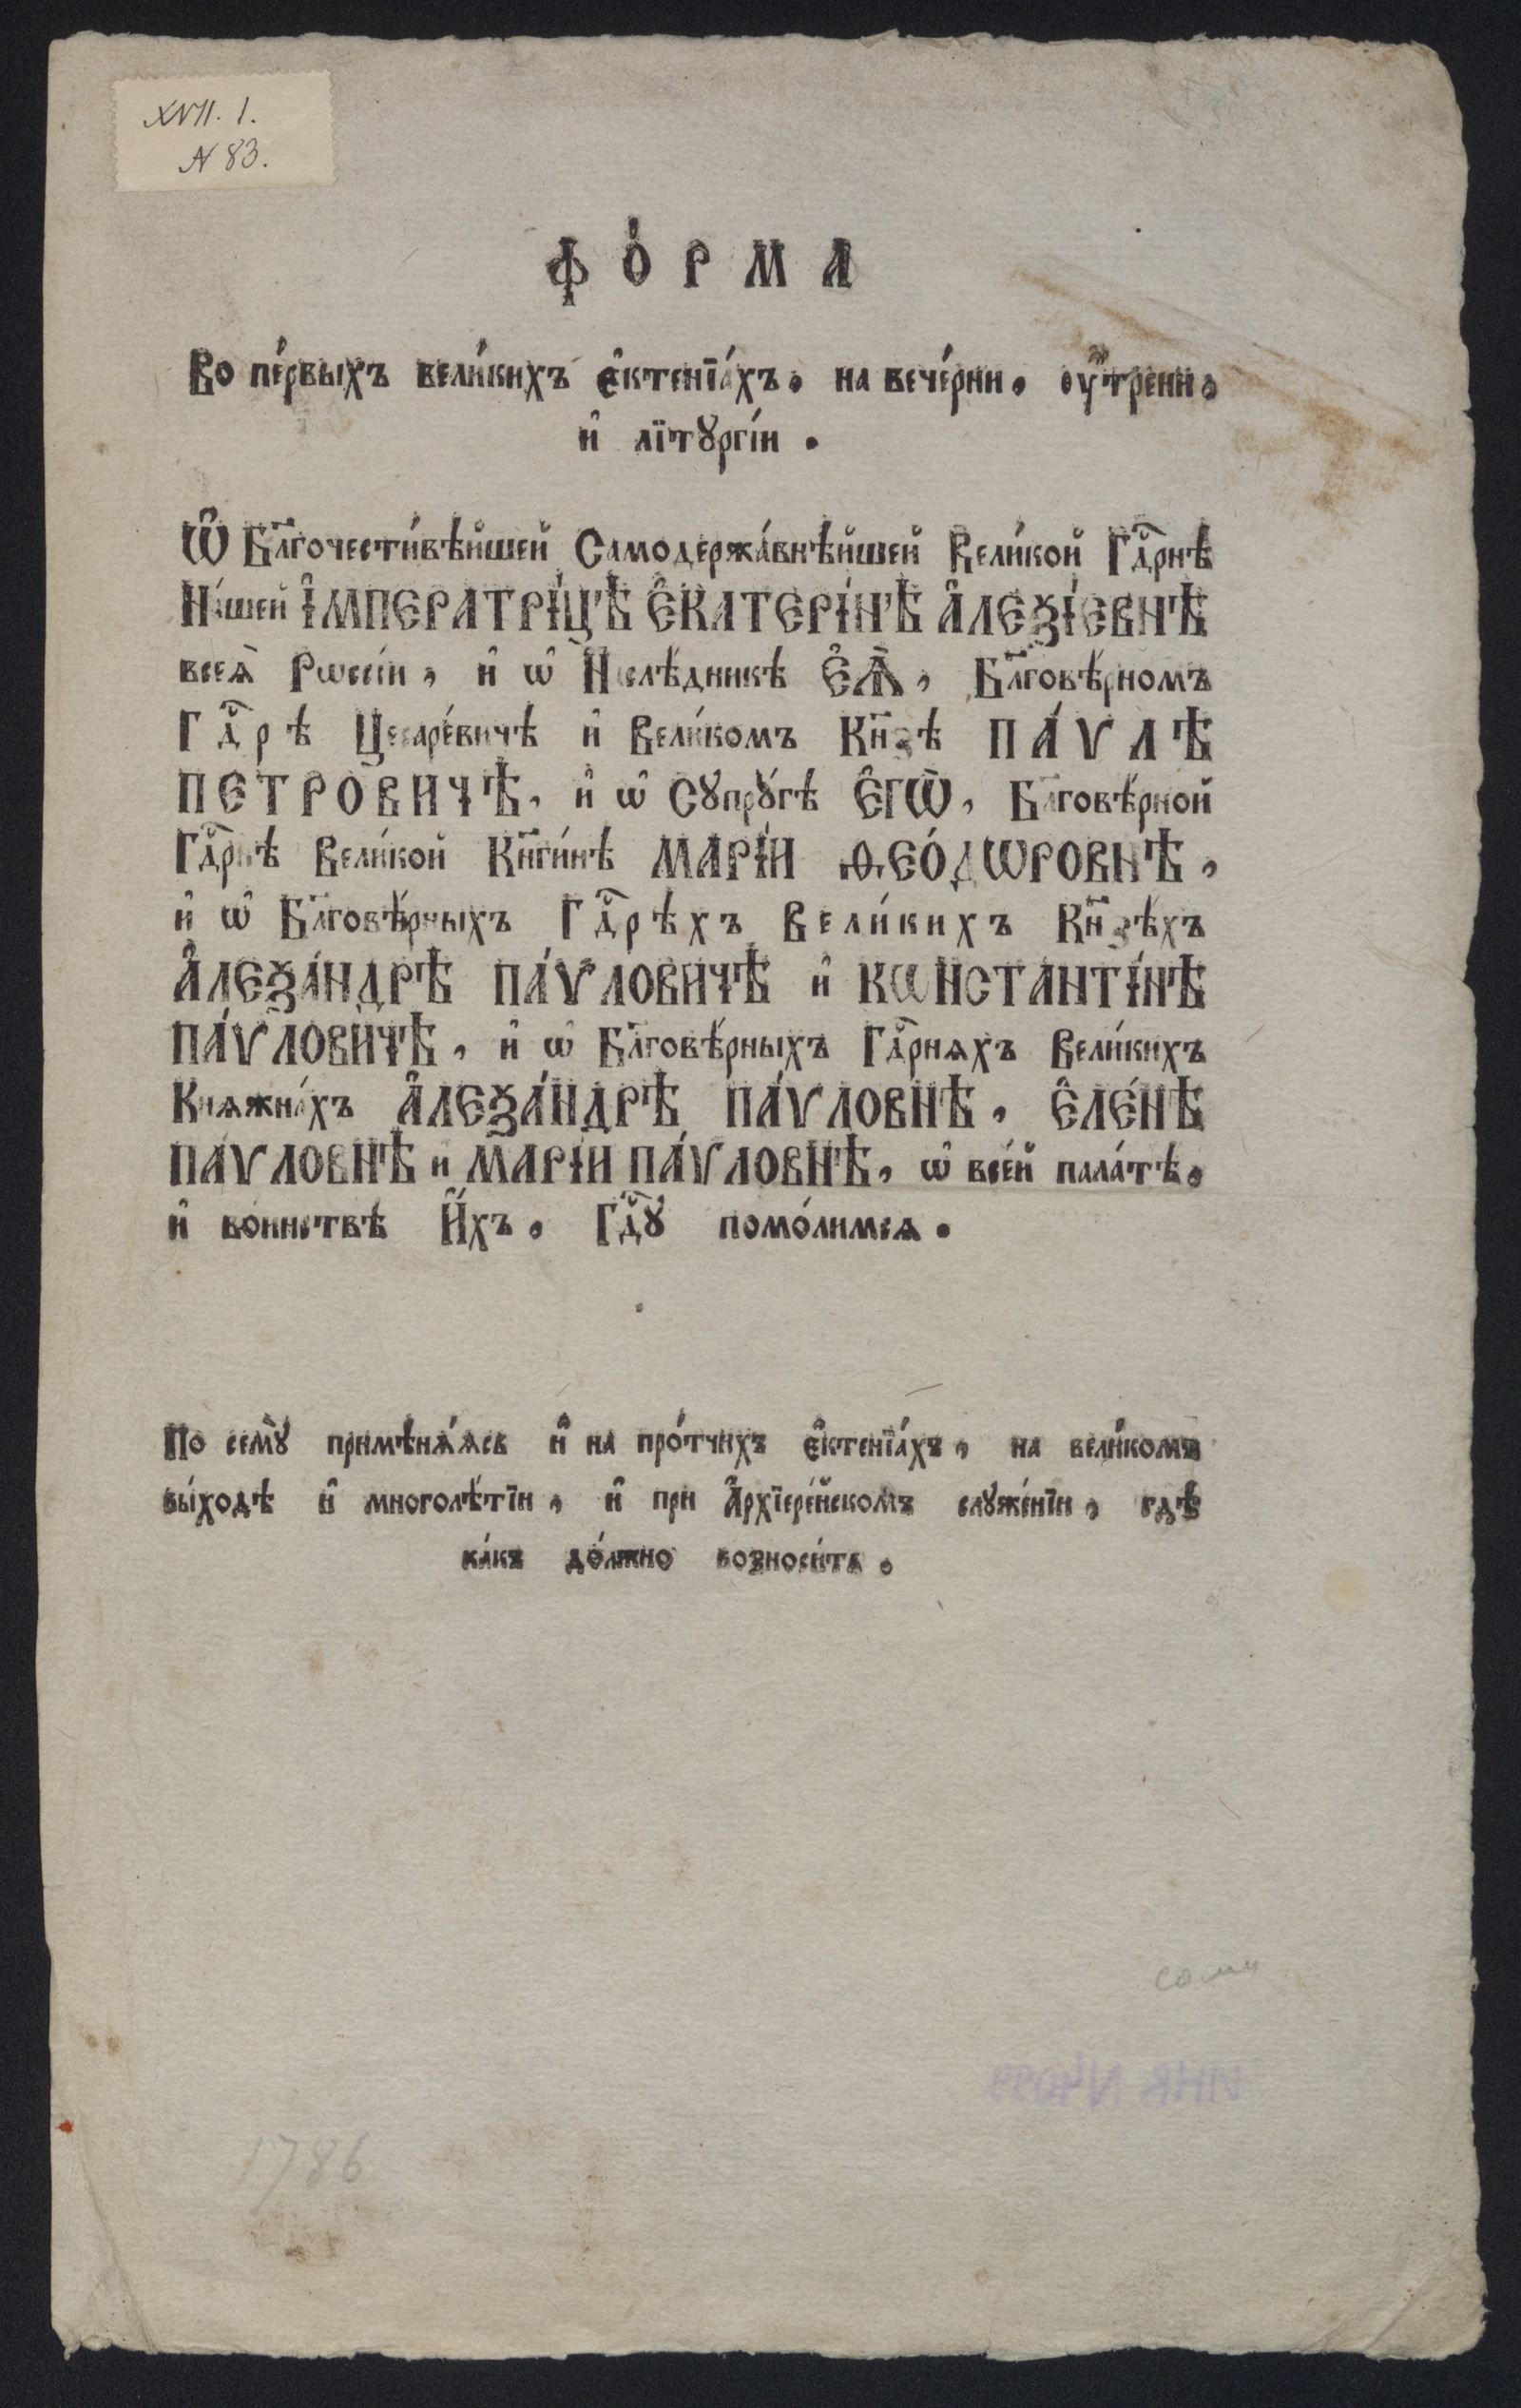 XVII. 1.
N 83.
ФО́РМА
Во пе́рвыхъ вели́кихъ є҆ктенїа́хъ, на вече́рни, оу҆́трени,
и҆ лїтꙋргі́и.
Ѡ҆ Бл҃гочести́вѣйшей Самодержа́внѣйшей Вели́кой Гдⷭ҇рнѣ
На́шей І҆МПЕРАТРІ́ЦѢ Є҆КАТЕРІ́НѢ А҆ЛЕѮІ́ЕВНѢ
всеѧ̀ Рѡссі́и, и҆ ѡ҆ Наслѣ́дникѣ Є҆Ѧ̀, Бл҃говѣ́рномъ
Гдⷭ҇рѣ Цесаре́вичѣ и҆ Вели́комъ Кн҃зѣ ПА́ѴЛѢ
ПЕТРО́ВИЧѢ, и҆ ѡ҆ Сꙋпрꙋ́гѣ Є҆ГѠ̀, Бл҃говѣ́рной
Гдⷭ҇рнѣ Вели́кой Кн҃ги́нѣ МАРІ́И ѲЕО́ДѠРОВНѢ,
и҆ ѡ҆ Бл҃говѣ́рныхъ Гдⷭ҇рѣхъ Вели́кихъ Кн҃зѣхъ
А҆ЛЕѮА́НДРѢ ПА́ѴЛОВИЧѢ и҆ КѠНСТАНТІ́НѢ
ПА́ѴЛОВИЧѢ, и҆ ѡ҆ Бл҃говѣ́рныхъ Гдⷭ҇рнѧхъ Вели́кихъ
Кнѧжна́хъ А҆ЛЕѮА́НДРѢ ПА́ѴЛОВНѢ, Є҆ЛЕ́НѢ
ПА́ѴЛОВНѢ и҆ МАРІ́И ПА́ѴЛОВНѢ, ѡ҆ все́й пала́тѣ,
и҆ во́инствѣ И҆́хъ, Гдⷭ҇ꙋ помо́лимсѧ.
По семꙋ̀ примѣнѧ́ѧсь и҆ на про́тчихъ є҆ктенїа́хъ, на вели́комъ
вы́ходѣ и҆ многолѣ́тїи, и҆ при А҆рхїере́йскомъ слꙋже́нїи, гдѣ
ка́къ до́лжно возноси́ть.
ИНВ N4099
1786